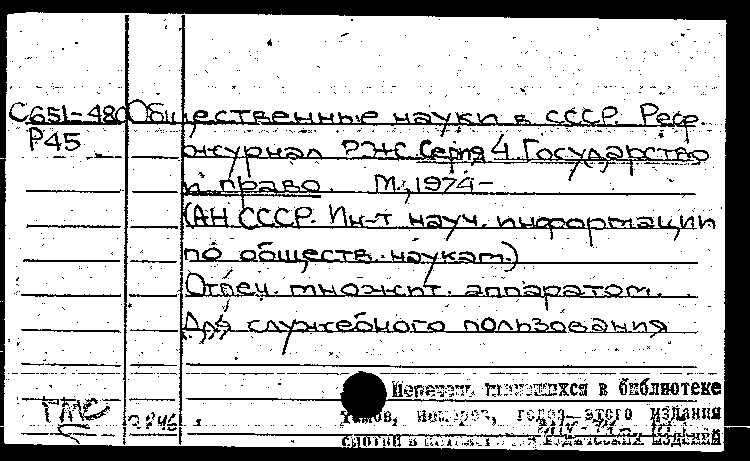 С651-480 Общественные науки в СССР. Реф.
Р45 журнал РЖС Серия 4 Государство
и право. М., 1974-
(АН СССР. Ин-т науч. информации
по обществ. наукам.)
Отпеч. множит. аппаратом.
Для служебного пользования
Перечень имеющихся в библиотеке
томов, номеров, годов этого издания
смотри в
ГМС